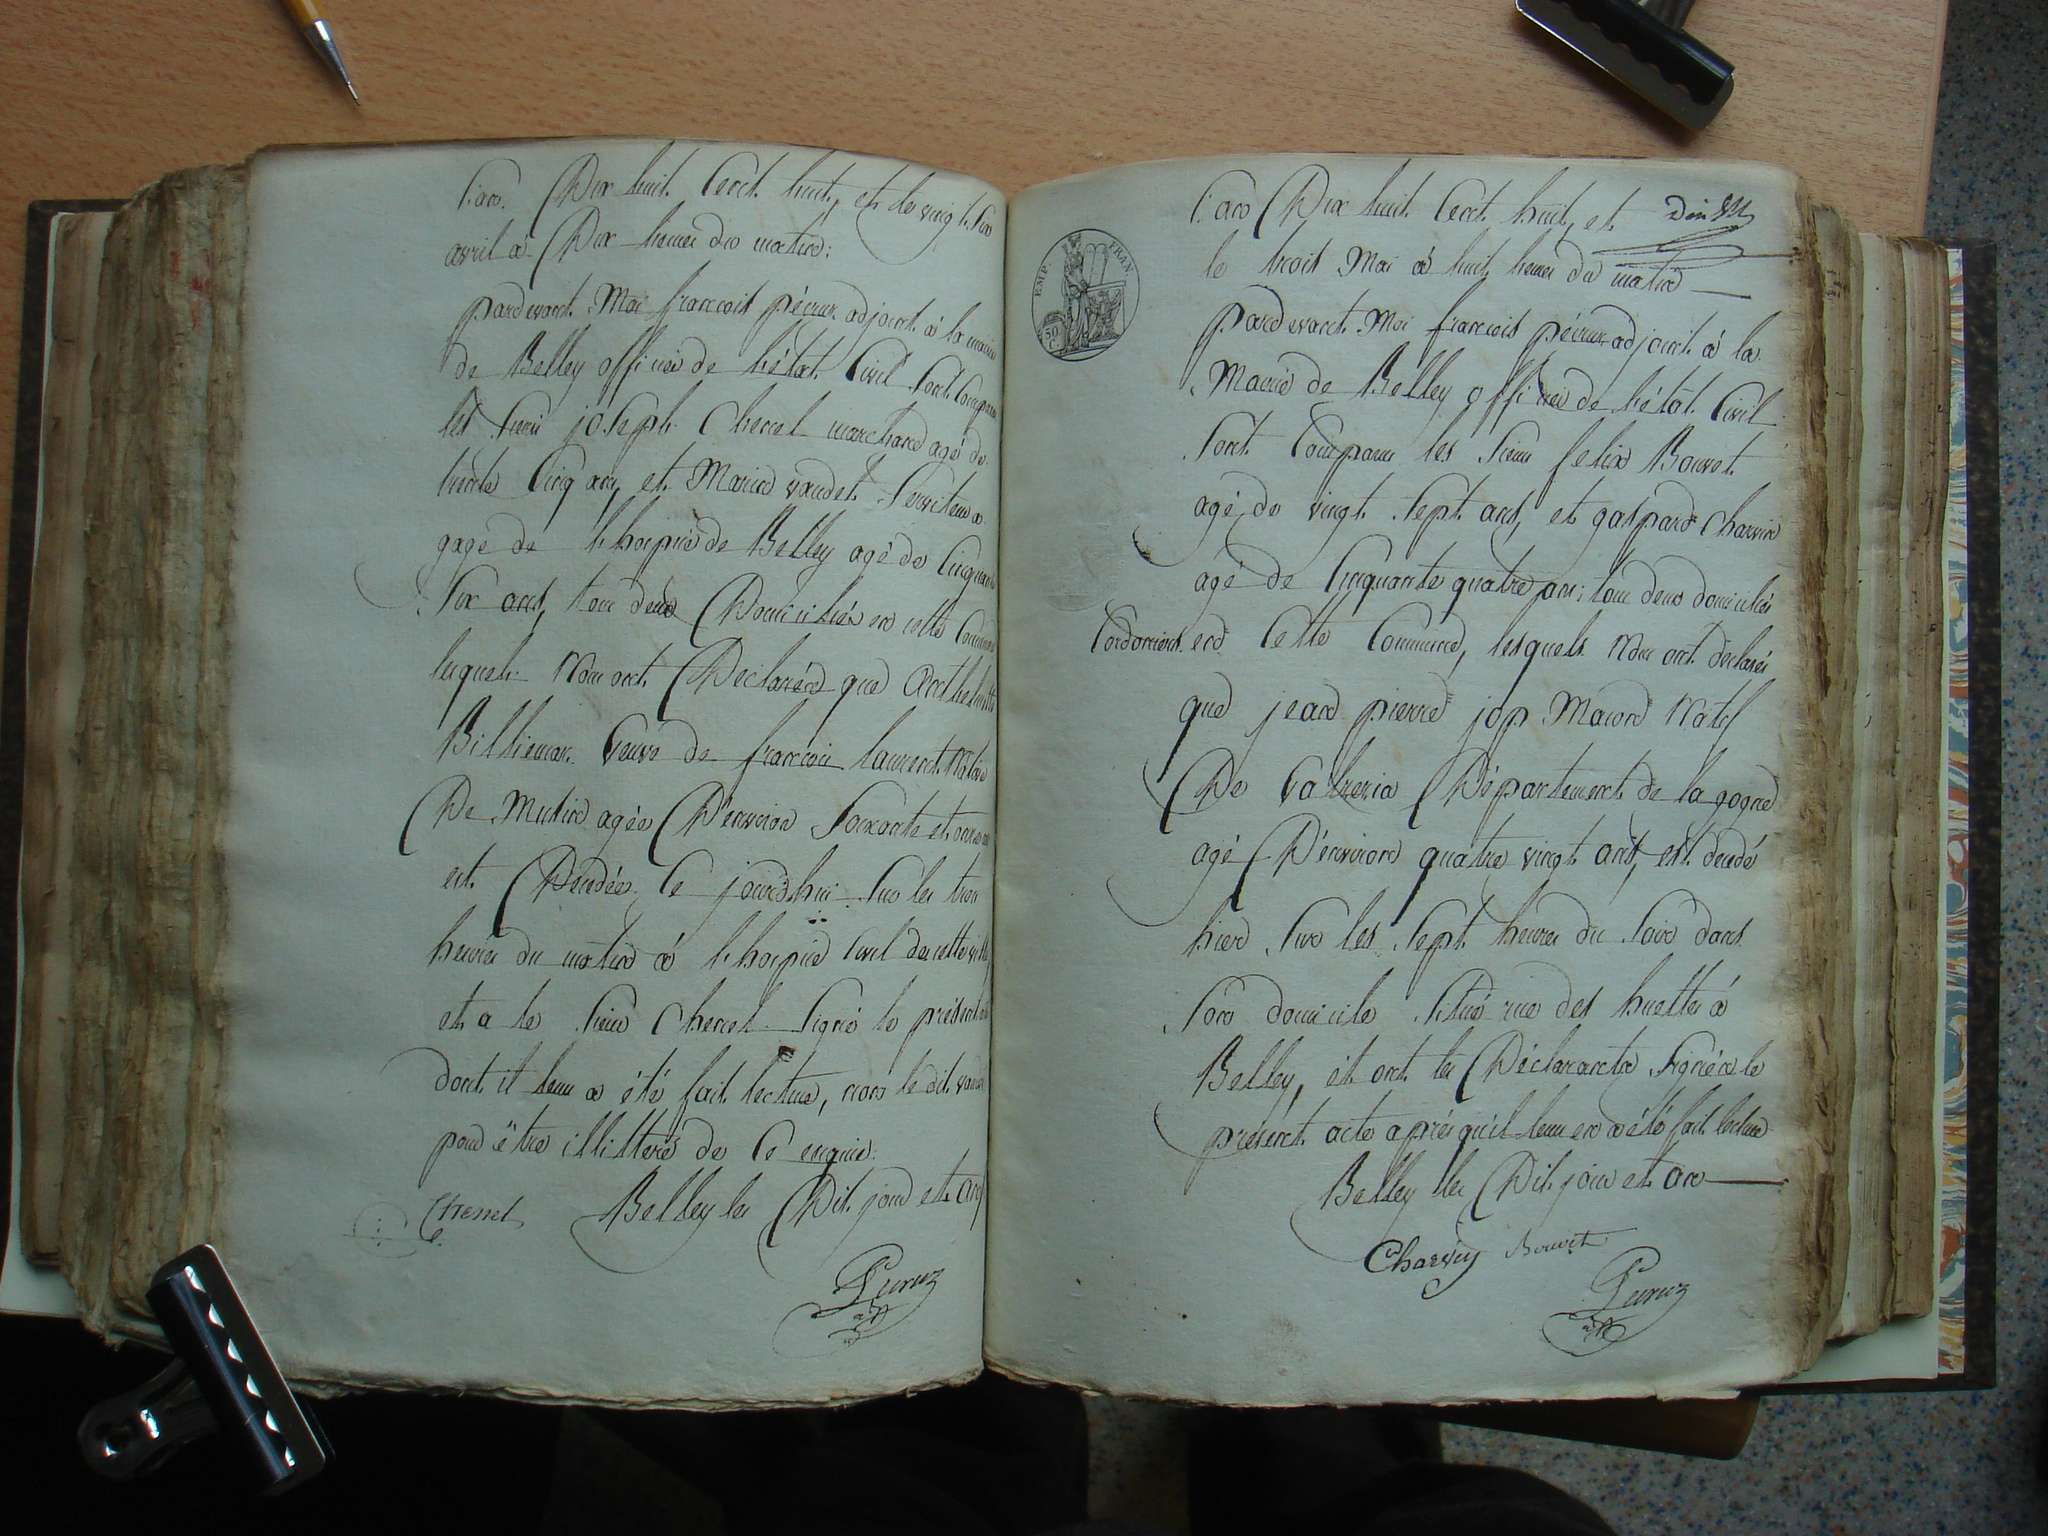 L'an Dix huit Cent huit, et le vingt six
avril à Dix heures du matin:
pardevant Moi françois péruz adjoint à la mairie
de Belley officier de l'état Civil sont Comparu
les sieur joseph Chenel marchand agé de
trente Cinq ans, et Marin vaudet serviteur a
gage de l'hospice de Belley agé de Cinquante
six ans, tous deux Domiciliés en cette Commune
lesquels Nous ont Déclarés que Anthelmette
Billiemax Veuve de françois laurent Native
De agée D'environ soixante et onze ans
est Décédée Ce jourd'hui sur les trois
heures du matin à l'hospice Civil de cette ville
et a le sieur Chenel signé le présent acte
dont il leur a été fait lecture, non le dit vaudet
pour être illitteré de Ce enquis.
Belley les Dit jour et an
Chenel
Péruz
L'an Dix huit Cent huit, et
le trois Mai à huit heures du matin
EMP. FRAN.
50 C.
pardevant Moi françois péruz adjoint à la
Mairie de Belley officier de l'état Civil
sont Comparu les sieur felix Bouvet
agé de vingt sept ans, et gaspard Charvin
agé de Cinquante quatre ans; tous deux domiciliés
Cordonniers en Cette Commune, lesquels Nous ont déclarés
que jean pierre jop Maron Natif
De Département de la gogna
agé D'environ quatre vingt ans, est décédé
hier sur les sept heures du soir dans
son domicile situé rue des huettes à
Belley, et ont les Déclarants signés le
présent acte après qu'il leur en a été fait lecture
Belley les Dit jour et an
Charvin Bouvet
Péruz